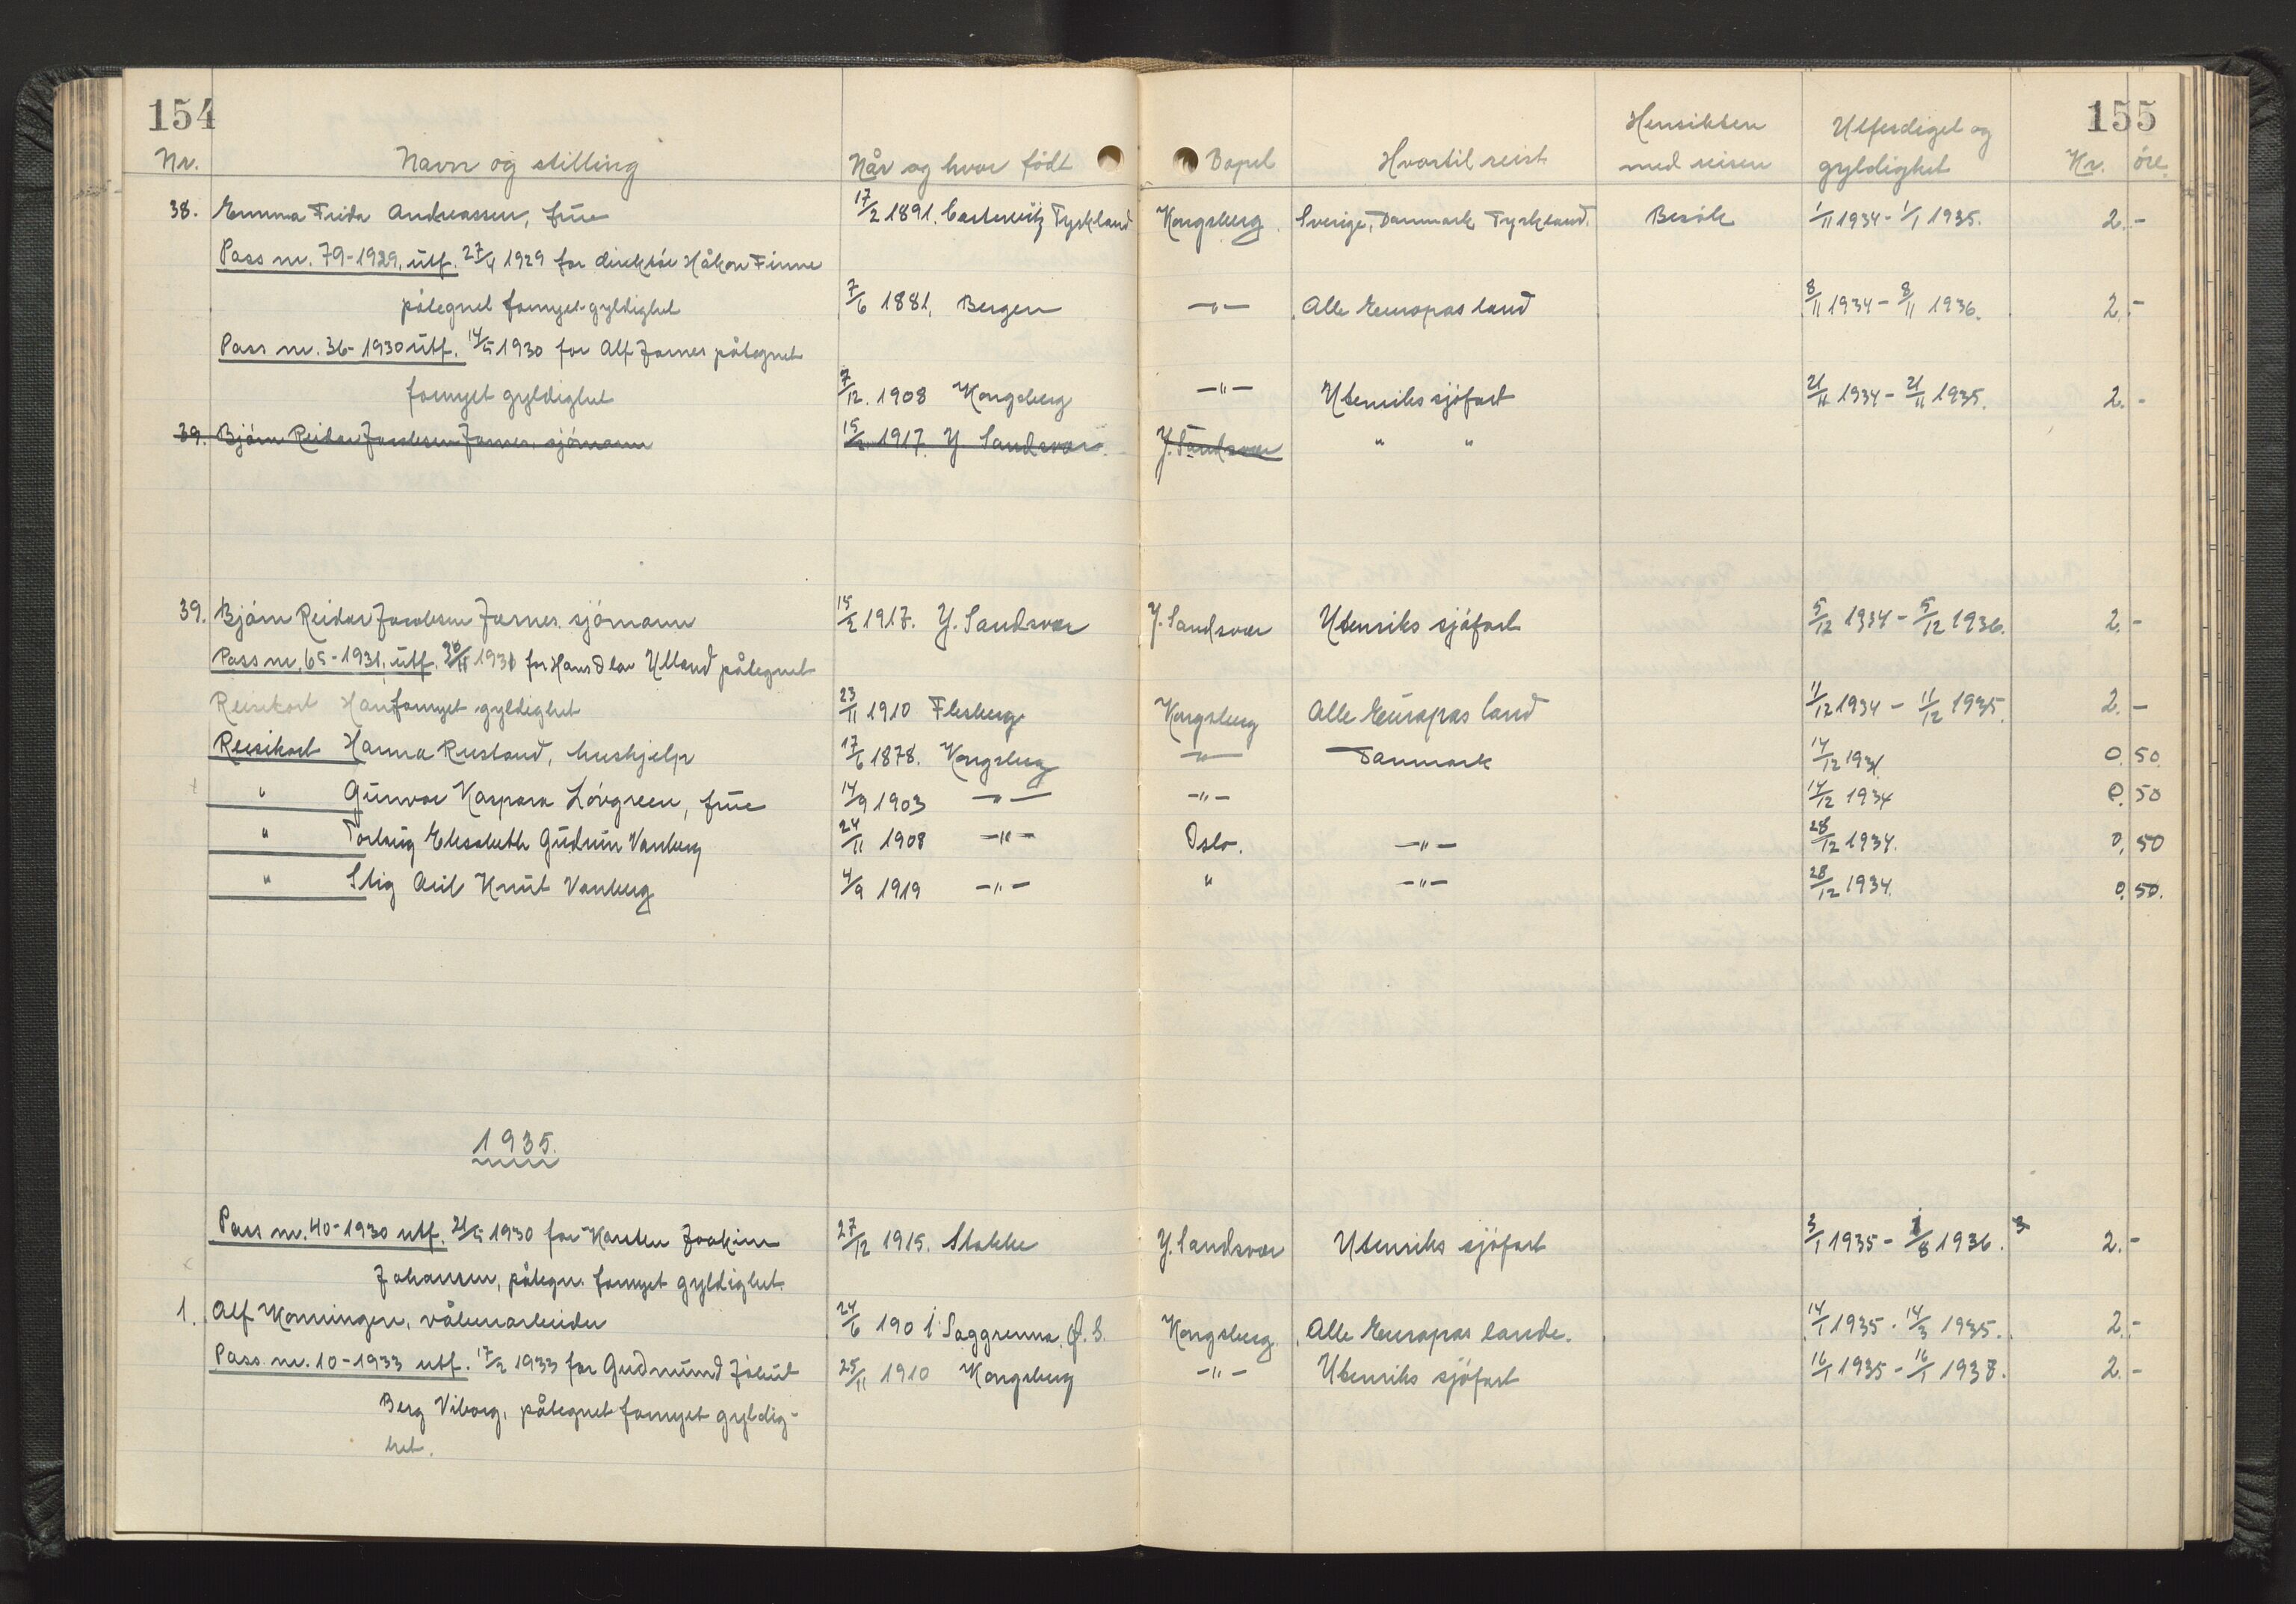 154
155
Nr. Navn og stilling Når og hvor född Bopel Hvortil reist Hensikten med reisen Utferdiget og gyldighet Kr. öre.
38. Emma Frida Andreassen, frue 17/2 1891. Tyskland Kongsberg. Sverige, Danmark Tyskland. Besök 1/11 1934 - 1/1 1935. 2. -
Pass nr. 79-1929, utf. 27/4 1929 for direktör Håkon Finne
påtegnet fornyet gyldighet 7/6 1881, Bergen -"- Alle Europas land 8/11 1934 - 8/11 1936. 2. -
Pass nr. 36-1930 utf. 14/5 1930 for Alf Jarnes påtegnet
fornyet gyldighet 7/12. 1908 Kongsberg -"- Utenriks sjöfart 21/11 1934 - 21/11 1935. 2. -
39. Björn Reidar Jacobsen Jarnes, sjömann 15/2 1917. Y. Sandsvær. Y. Sandsvær " "
39. Björn Reidar Jacobsen Jarnes. sjömann 15/2 1917. Y. Sandsvær Y. Sandsvær Utenriks sjöfart 5/12 1934 - 5/12 1936. 2. -
Pass nr. 65-1931, utf. 1931 for Hans Olav Ulland påtegnet
Reisekort Han fornyet gyldighet 23/11 1910 Flesberg Kongsberg Alle Europas land 11/12 1934 - 11/12 1935. 2. -
Reisekort Hanna Rustand, hushjelp 17/6 1878. Kongsberg -"- Danmark 14/12 1934. 0. 50.
" Gunvor Kaspara Lövgreen, frue 14/9 1903 -"- -"- 14/12 1934 0. 50
" Torborg Elisabeth Gudrun Vanberg 24/11 1908 -"- Oslo. -"- 28/12 1934. 0, 50
" Stig Knut Vanberg 4/9 1919 -"- " -"- 28/12 1934. 0. 50.
1935.
Pass nr. 40-1930 utf. 21/5 1930 for Karsten Joakim 27/12 1915. Stokke Y. Sandsvær Utenriks sjöfart 3/1 1935 - 1/8 1936. 3 2. -
Johansen, påtegn. fornyet gyldighet.
1. Alf Korningen, våbenarbeider 24/6 1901 Saggrenna, Ö. S. Kongsberg. Alle Europas lande. 14/1 1935 - 14/3 1935. 2. -
Pass nr. 10-1933 utf. 17/2 1933 for Gudmund 25/11 1910 Kongsberg -"- Utenriks sjöfart 16/1 1935 - 16/1 1938. 2. -
Berg Viborg, påtegnet fornyet gyldig-
het.